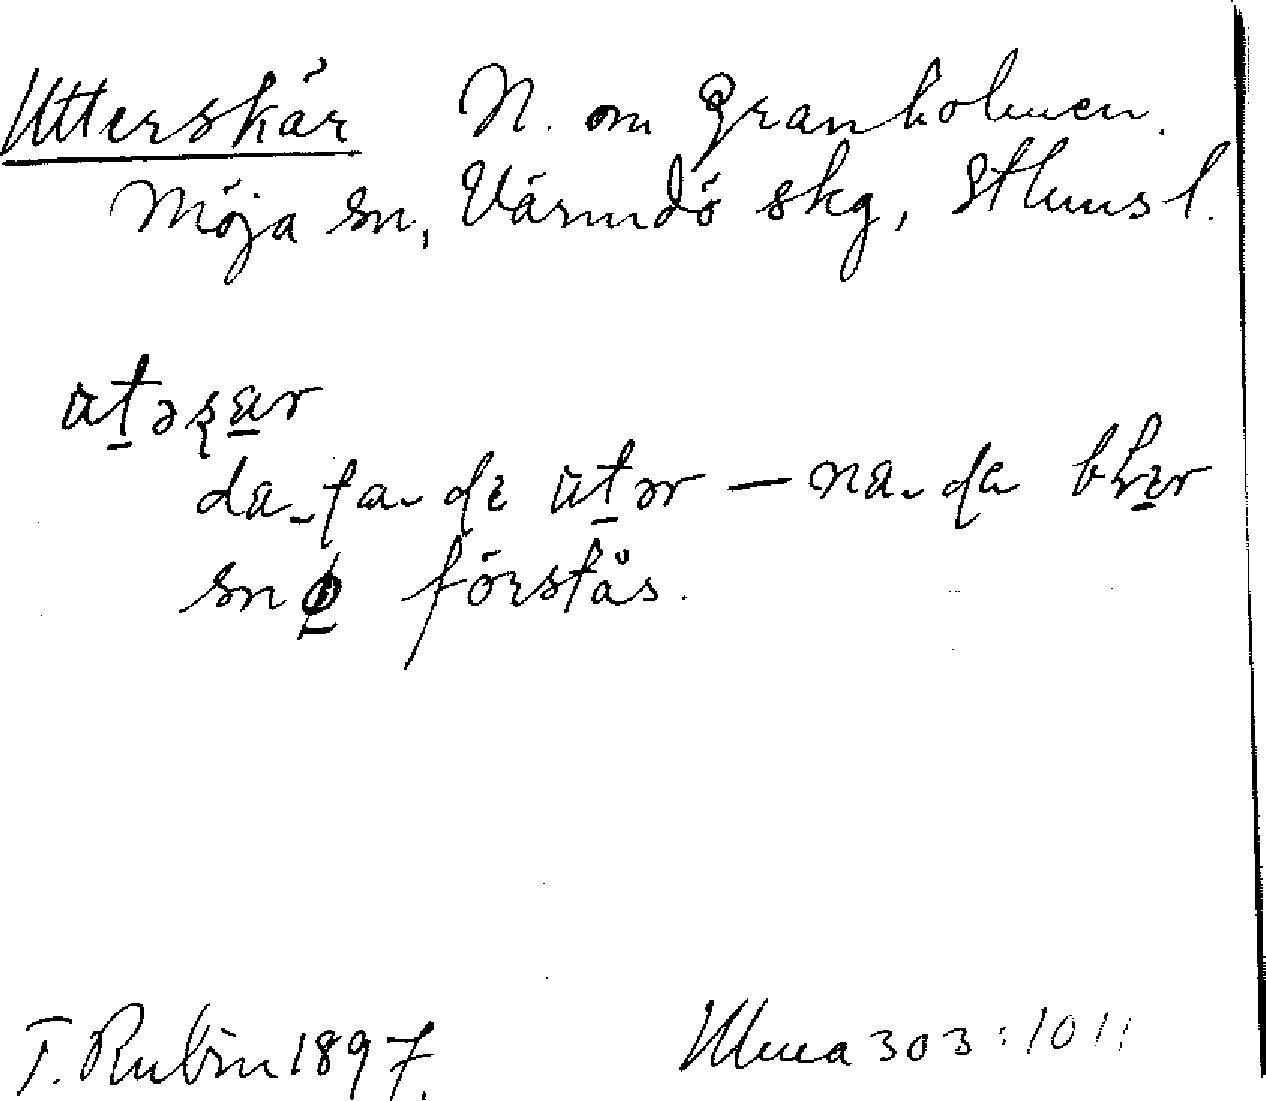 Utterskär N. om Granholmen.
Möja sn, Värmdö skg, Sthms l.
ɯt̠əʂær
da fa de ɯt̠ər — na da bler
snø förstås.
T. Rubin 1897. Ulma 303:10 11